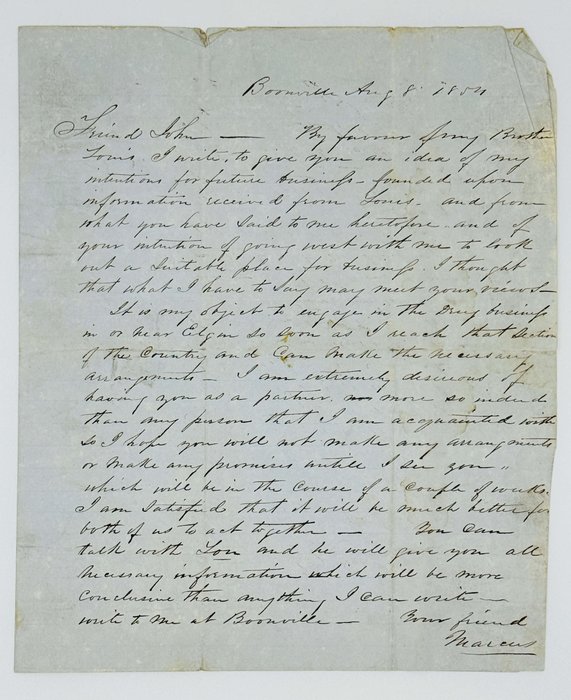 Boonville Aug 8 1854
Friend John — By favour of my Brother
Louis, I write, to give you an idea of my
intentions for future business — founded upon
information received from Louis. and from
what you have said to me heretofore. and of
your intention of going west with me to look
out a suitable place for business. I thought
that what I have to say may meet your views —
It is my object to engage in the Drug business
in or near Elgin so soon as I reach that section
of the Country and Can make the necessary
arrangements — I am extremely desireous of
having you as a partner. more so indeed
than any person that I am acquainted with
so I hope you will not make any arrangements
or make any promises untill I see you "
which will be in the course of a couple of weeks.
I am satisfied that it will be much better for
both of us to act together — You Can
talk with Lou and he will give you all
necessary information which will be more
conclusive than anything I can write —
write to me at Boonville — Your friend
Marcus